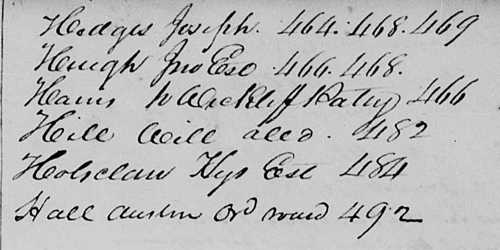 Hedges Joseph. 464. 468. 469
Hough Jno Esc 466. 468.
Harris Wickliff Ratey 466
Hill Will alld. 482
Holsclaw Hys Est 484
Hall Austin Ord ward 492